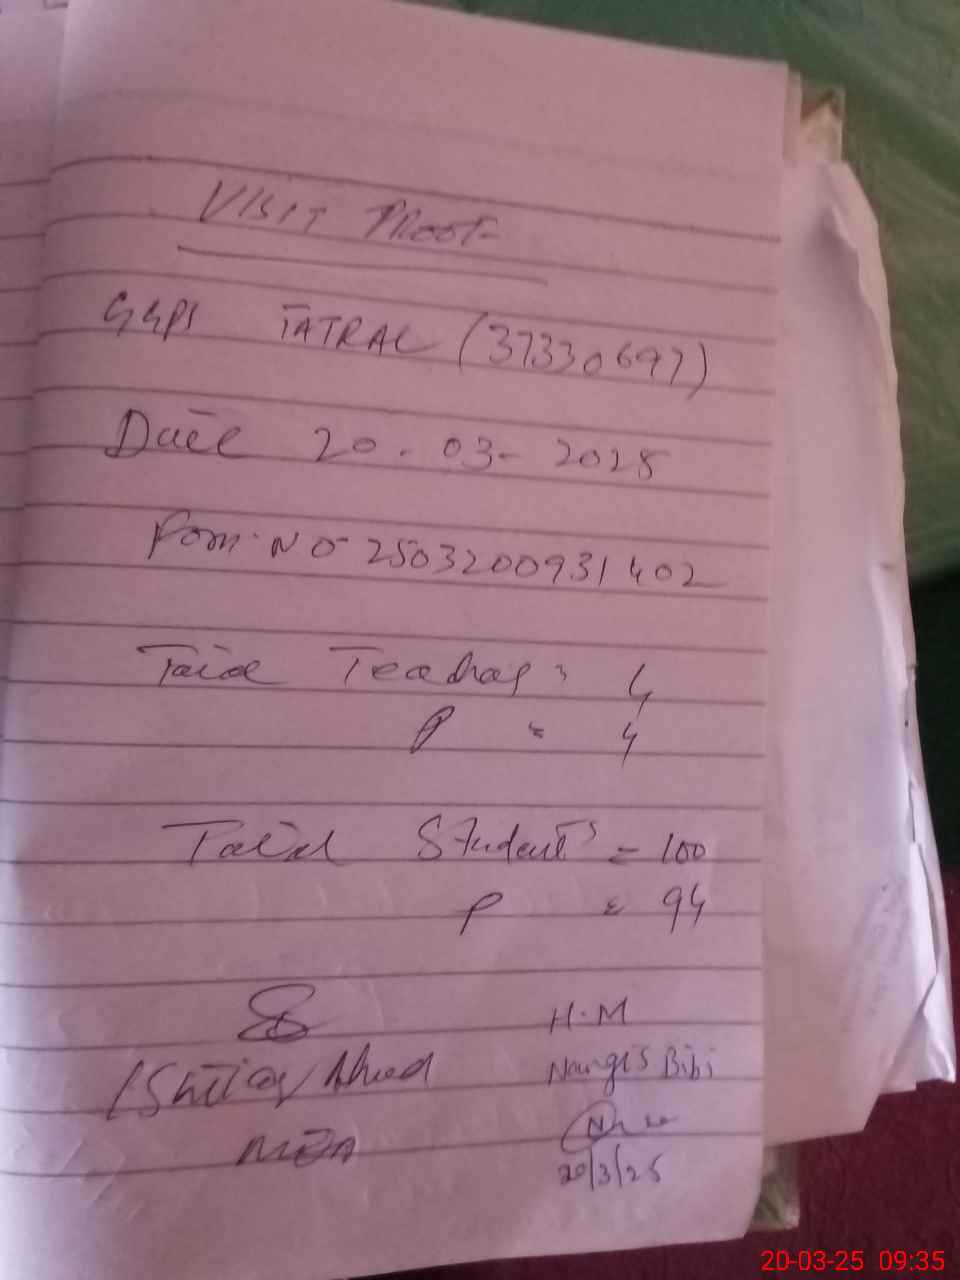 VISIT PROOF
GGPS TATRAL (37330697)
Date 20.03-2025
Form.NO 2503200931402
Total Teachers = 4
P = 4
Total Students = 100
P = 94
H.M
Ishtiaq Ahmed Nargis Bibi
MEA
20/3/25
20-03-25 09:35